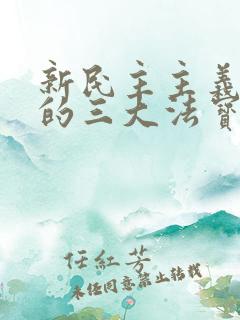 新民主主義
的三大法寶
任紅芳
未經同意禁止轉載